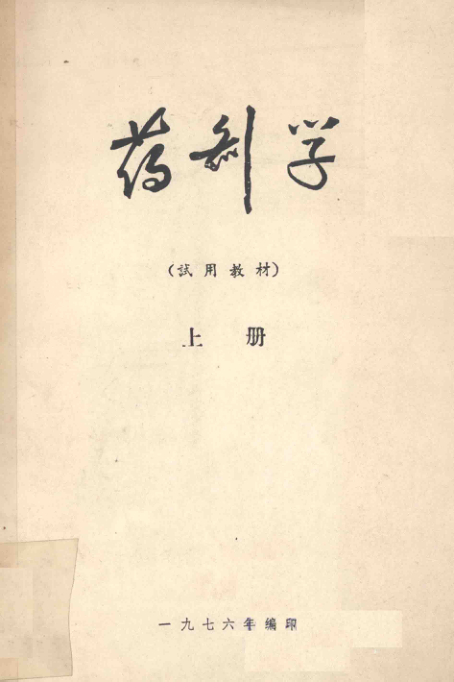 药剂学
(试用教材)
上册
一九七六年编印